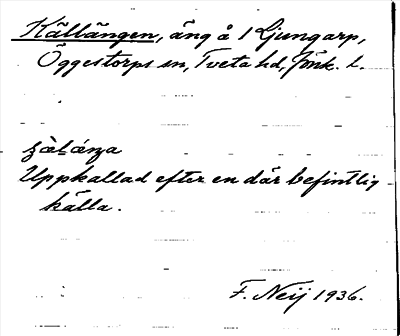 Källängen, äng å 1 Ljungarp,
Öggestorps sn, Tveta hd, Jönk. l.
Uppkallad efter en där befintlig
källa.
F. Neij 1936.